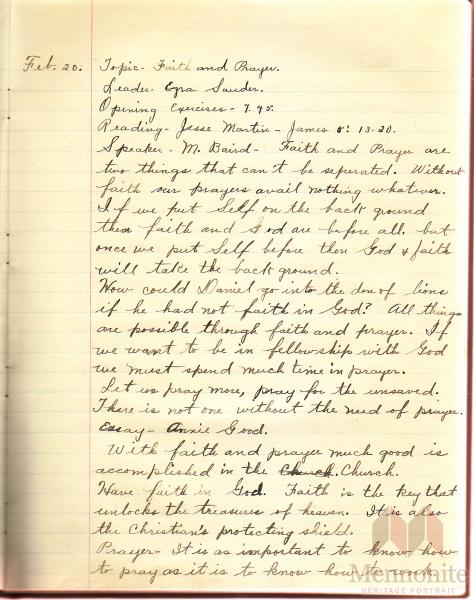 Feb. 20. Topic- Faith and Prayer.
Leader- Ezra Sauder.
Opening Exercises- 7.45.
Reading- Jesse Martin- James 5: 13-20.
Speaker- M. Baird- Faith and Prayer are
two things that can't be seperated. Without
faith our prayers avail nothing whatever.
If we put Self on the back ground
then faith and God are before all. but
once we put Self before then God & faith
will take the back ground.
How could Daniel go into the den of lions
if he had not faith in God? All things
are possible through faith and prayer. If
we want to be in fellowship with God
we must spend much time in prayer.
Let us pray more, pray for the unsaved.
There is not one without the need of prayer.
Essay- Annie Good.
With faith and prayer much good is
accomplished in the Church. Church.
Have faith in God. Faith is the key that
unlocks the treasures of heaven. It is also
the Christian's protecting shield.
Prayer- It is as important to know how
to pray as it is to know how to work
Mennonite
HERITAGE PORTRAIT